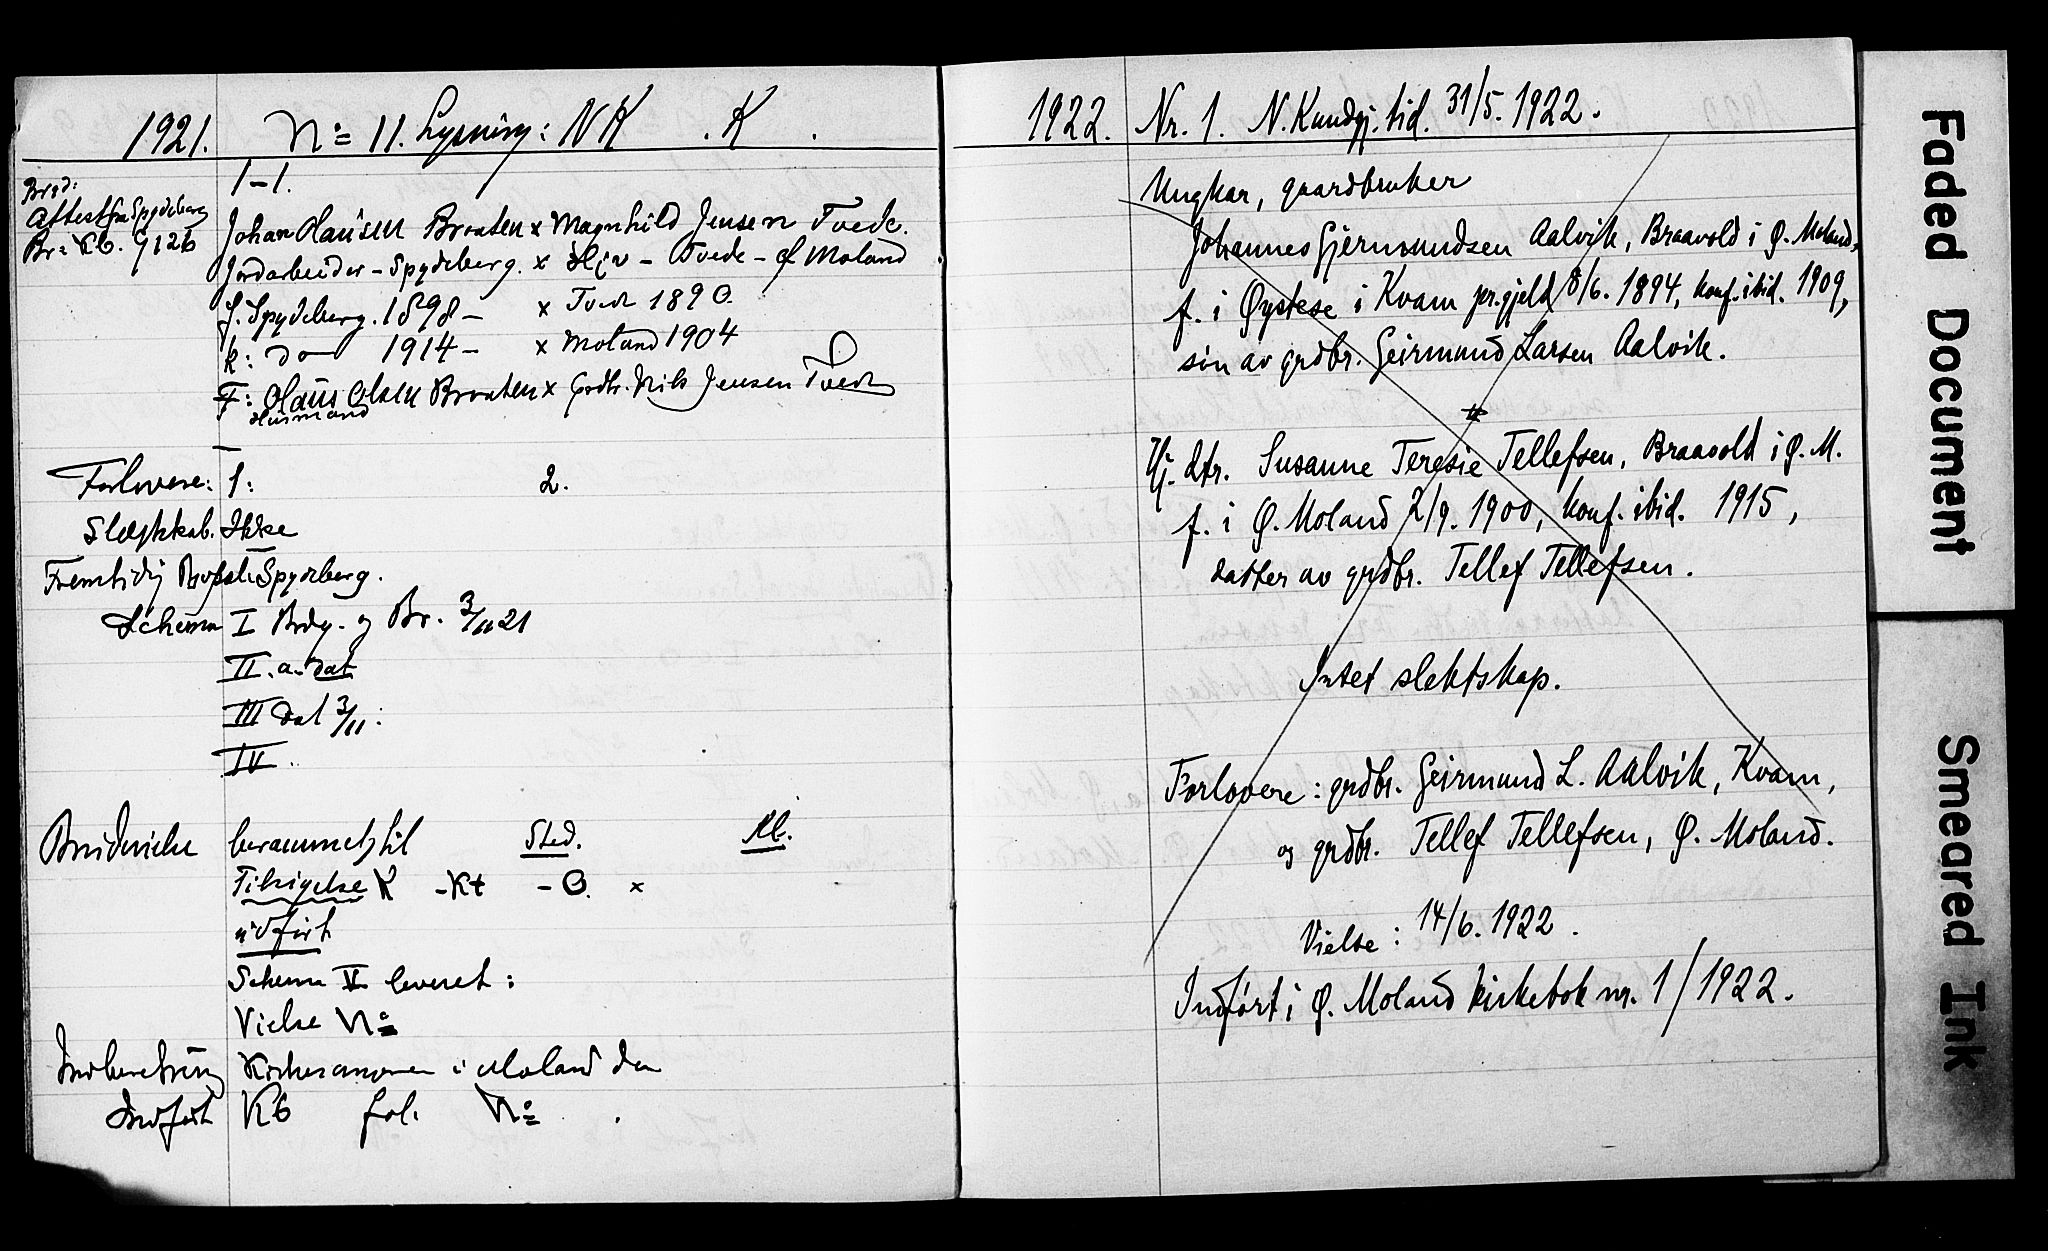 1921. No 11. Lysning: NK . K .
1-1.
Brgd:
Attest fra Spydeberg
Br: Kb. 9126
Johan Olausen Braaten x Magnhild Jensen Tvede.
Jordarbeider - Spydeberg. x Hjv - Tvede - Ø Moland
f. Spydeberg. 1898 - x Tvede 1890.
k: do 1914 - x Moland 1904
F: Olaus Olsen Braaten x Grdbr. Nils Jensen Tvede
Husmand
Forlovere: 1: 2.
Slægtskab. Ikke
Fremtidig Bopæl: Spydeberg.
Schema I Brdg. og Br. 3/11 21
II. a. dat
III dat 3/11:
IV.
Brudevielse berammet til Sted. Kl.
Tilsigelse K - Kt - O. x
udført
Schema V leveret:
Vielse No
Indberetning i Moland den
Indført Kb fol. No .
1922. Nr. 1. N. Kundgj. tid. 31/5. 1922.
Ungkar, gaardbruker
Johannes Gjermundsen Aalvik, Braavold i Ø. Moland,
f. i Øystese i Kvam pr.gjeld 8/6. 1894, konf. ibid. 1909,
søn av grdbr. Geirmund Larsen Aalvik.
Hj. dtr. Susanne Teresie Tellefsen, Braavold i Ø. M.
f. i Ø. Moland 2/9. 1900, konf. ibid. 1915,
datter av grdbr. Tellef Tellefsen.
Intet slektskap.
Forlovere: grdbr. Geirmund L. Aalvik, Kvam,
og grdbr. Tellef Tellefsen, Ø. Moland.
Vielse: 14/6. 1922.
Indført i Ø. Moland kirkebok nr. 1/1922.
Faded Document
Smeared Ink